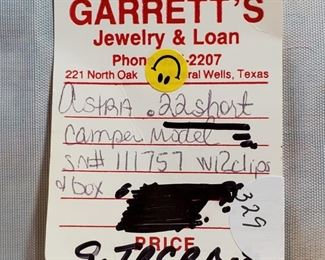 GARRETT'S
Jewelry & Loan
Phon -2207
221 North Oak ral Wells, Texas
Astra .22 short
Camper Model
SN# 111757 W/2 clips
& box
329
PRICE